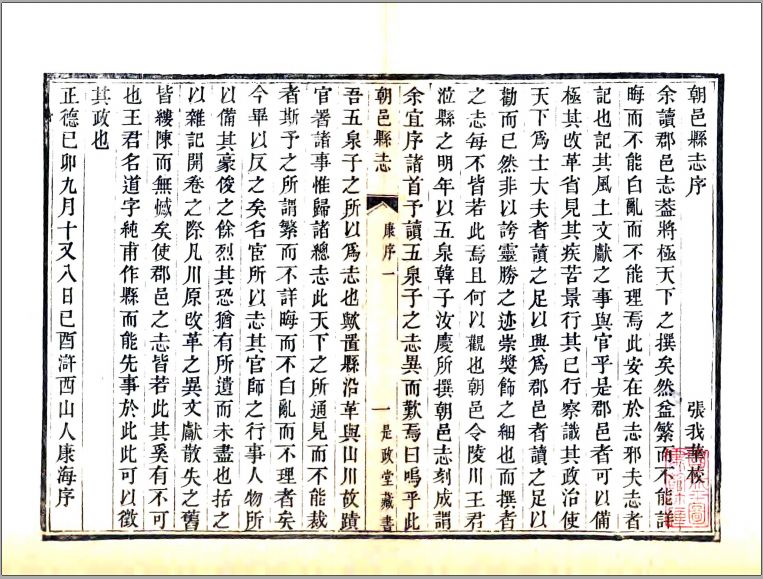 朝邑縣志序　張我華校
余讀郡邑志葢將極天下之撰矣然益繁而不能詳
晦而不能白亂而不能理焉此安在於志邪夫志者
記也記其風土文獻之事與官乎是郡邑者可以備
極其改革省見其疾苦景行其已行察識其政治使
天下爲士大夫者讀之足以興爲郡邑者讀之足以
勸而已然非以誇靈勝之迹崇獎飾之細也而撰者
之志每不皆若此焉且何以觀也朝邑令陵川王君
涖縣之明年以五泉韓子汝慶所撰朝邑志刻成謂
余宜序諸首予讀五泉子之志異而歎焉曰嗚乎此
朝邑縣志　康序一　一是政堂藏書
吾五泉子之所以爲志也歟置縣沿革與山川故蹟
官署諸事惟歸諸總志此天下之所通見而不能裁
者斯予之所謂繁而不詳晦而不白亂而不理者矣
今畢以反之矣名宦所以志其官師之行事人物所
以備其豪俊之餘烈其恐猶有所遺而未盡也括之
以雜記開卷之際凡川原改革之異文獻散失之舊
皆縷陳而無憾矣使郡邑之志皆若此其奚有不可
也王君名道字純甫作縣而能先事於此此可以徵
其政也
正德己卯九月十又八日己酉滸西山人康海序